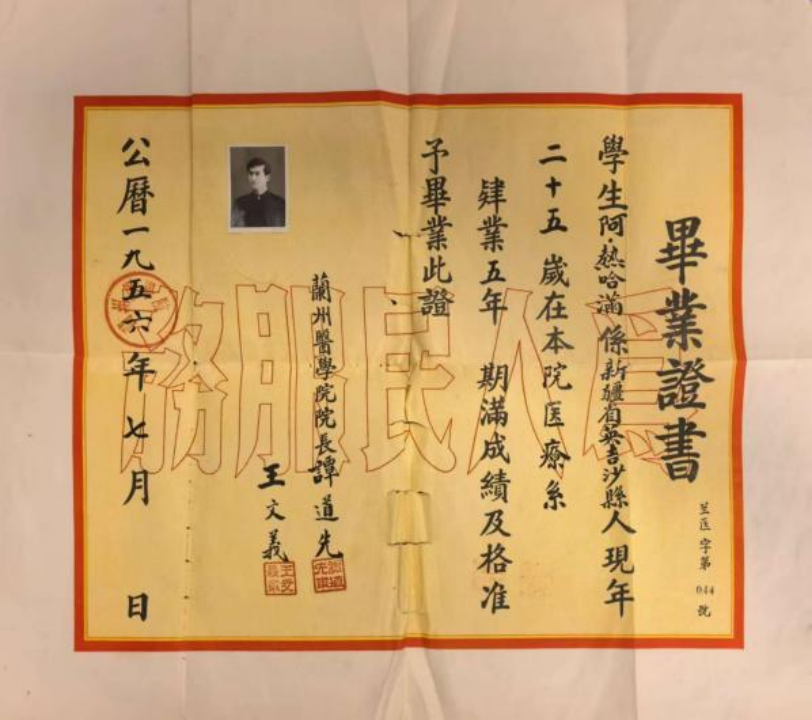 畢業證書
兰医字第044號
學生阿·熱哈滿係新疆省英吉沙縣人現年
二十五歲在本院医療系
肄業五年期滿成績及格准
予畢業此證
蘭州醫學院院長譚道先
王文義
公曆一九五六年七月日
為人民服務